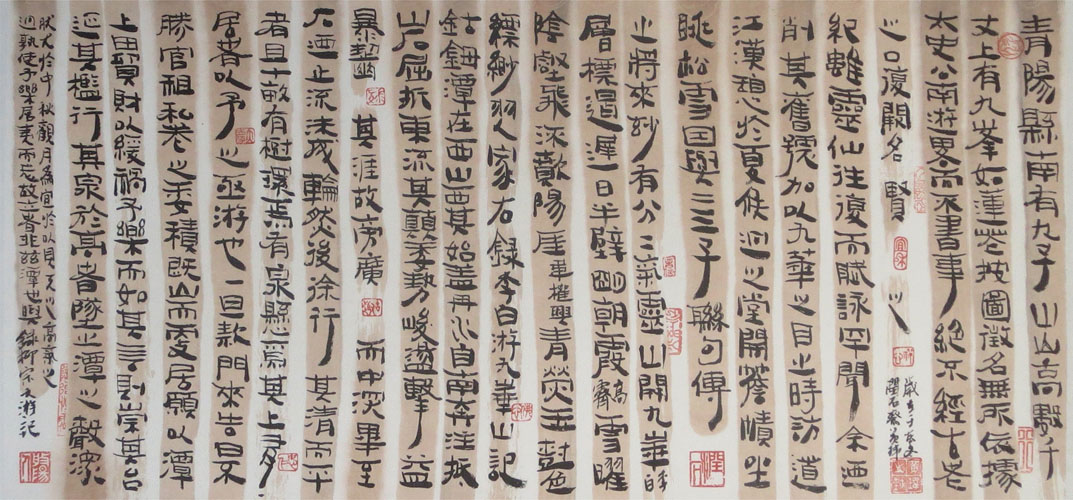 青陽縣南有九子山山高數千
丈上有九峯如蓮花按圖徵名無所依據
太史公南游畧而不書事絕不經古老
之口復闕名賢之
紀雖靈仙往復而賦詠罕聞余迺
削其舊號加以九華之目㞢時訪道
江漢憩於夏侯迴之堂開簷幘坐
眺松雪因與二三子聯句傳
㞢將來妙有分二氣靈山開九華李白
層標遏遲日半壁明朝霞高霽雪曜
陰壑飛流歕陽崖韋權輿青熒玉樹色
縹緲羽人家右錄李白游九華山記
鈷鉧潭在西山西其始蓋冉水自南奔注抵
山石屈折東流其顛委勢峻盪擊益
暴齧其涯故旁廣而中深畢至
石迺止流沫成輪然後徐行其清而平
者且十畝有樹環焉有泉懸焉其上有
居者以予之亟游也一旦款門來告曰不
勝官租私券之委積既山而更居願以潭
上田貿財以緩禍予樂而如其言則崇其臺
延其檻行其泉於高者墜㞢潭有聲潀
然尤於中秋觀月為宜於以見天之高氣之
迥孰使予樂居夷而忘故土者非茲潭也歟錄柳宗元游記